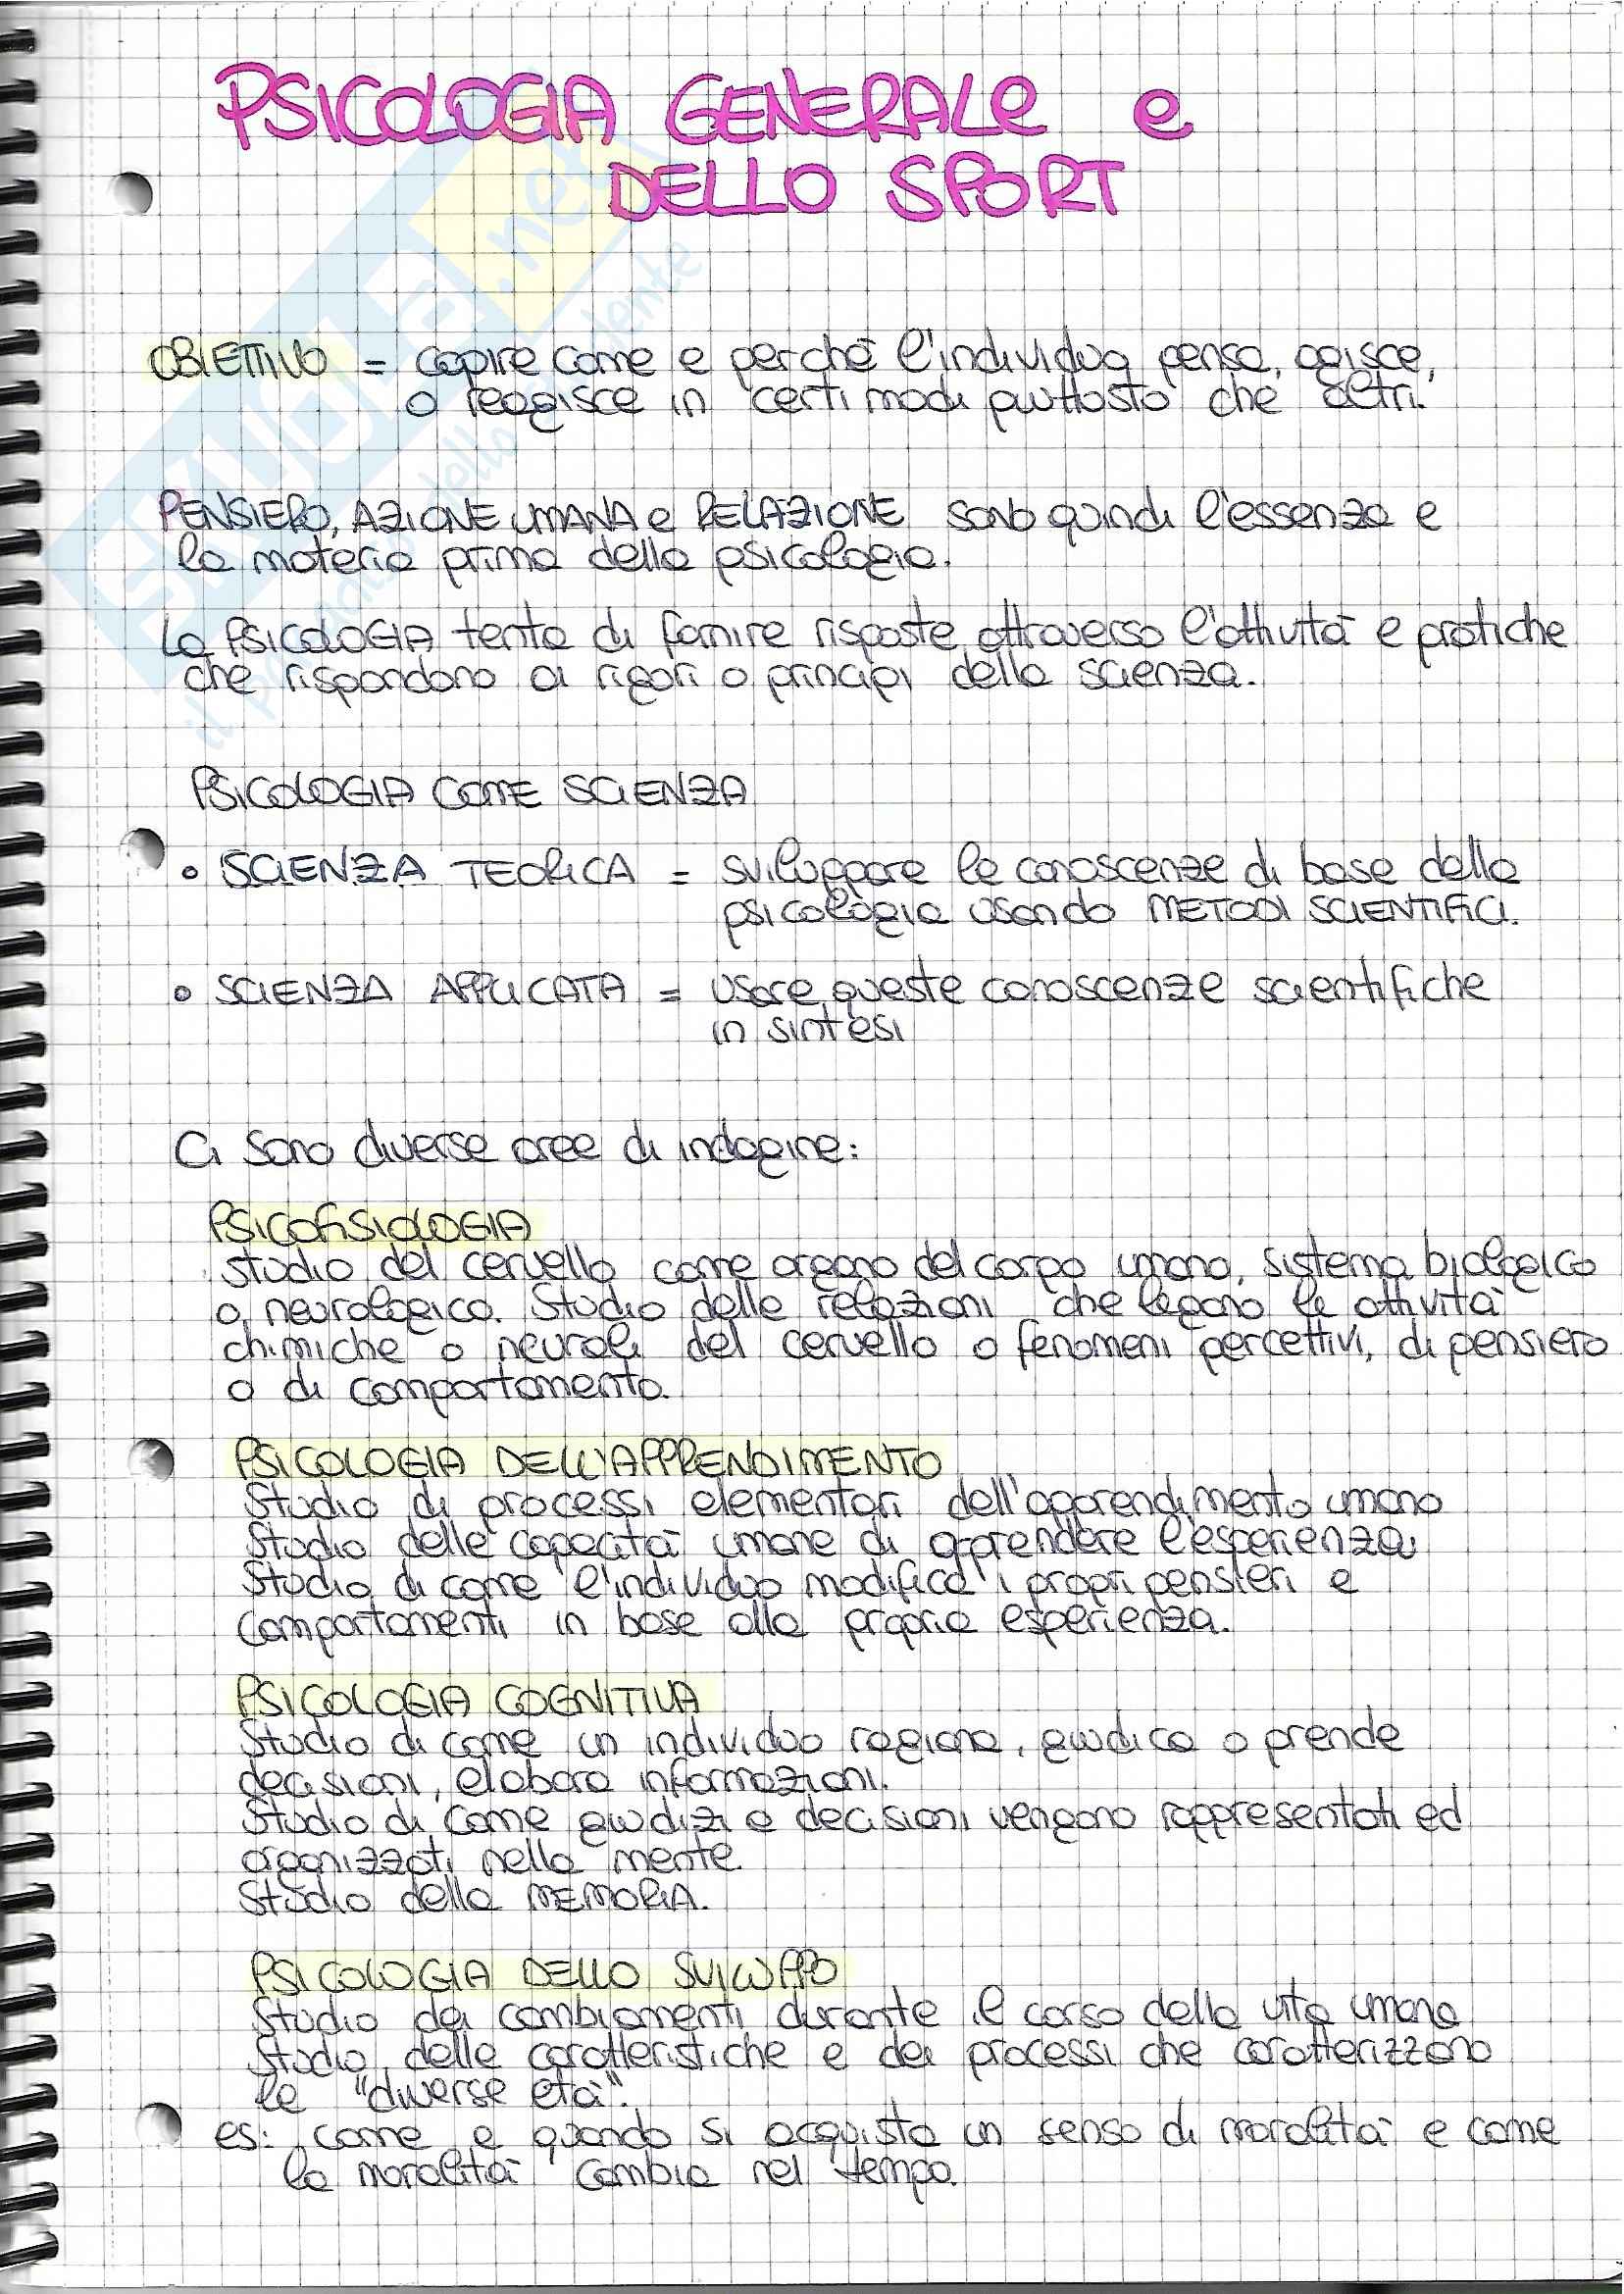 PSICOLOGIA GENERALE e
DELLO SPORT
OBIETTIVO = capire come e perchè l'individuo pensa, agisce,
o reagisce in certi modi piuttosto che altri.
PENSIERO, AZIONE UMANA e RELAZIONE sono quindi l'essenza e
la materia prima della psicologia.
La PSICOLOGIA tenta di fornire risposte attraverso l'attività e pratiche
che rispondono ai rigori o principi della scienza.
PSICOLOGIA COME SCIENZA
• SCIENZA TEORICA = sviluppare le conoscenze di base della
psicologia usando METODI SCIENTIFICI.
• SCIENZA APPLICATA = usare queste conoscenze scientifiche
in sintesi
Ci sono diverse aree di indagine:
PSICOFISIOLOGIA
studio del cervello come organo del corpo umano, sistema biologico
o neurologico. Studio delle relazioni che legano le attività
chimiche o neurali del cervello a fenomeni percettivi, di pensiero
o di comportamento.
PSICOLOGIA DELL'APPRENDIMENTO
Studio di processi elementari dell'apprendimento umano
Studio delle capacità umane di apprendere l'esperienza
Studio di come l'individuo modifica i propri pensieri e
comportamenti in base alla propria esperienza.
PSICOLOGIA COGNITIVA
Studio di come un individuo ragiona, giudica o prende
decisioni, elabora informazioni.
Studio di come giudizi e decisioni vengono rappresentati ed
organizzati nella mente.
Studio della MEMORIA.
PSICOLOGIA DELLO SVILUPPO
Studio dei cambiamenti durante il corso della vita umana
Studio delle caratteristiche e dei processi che caratterizzano
le "diverse età".
es: come e quando si acquista un senso di moralità e come
la moralità cambia nel tempo.
SKUOLA.net
il paradiso dello studente